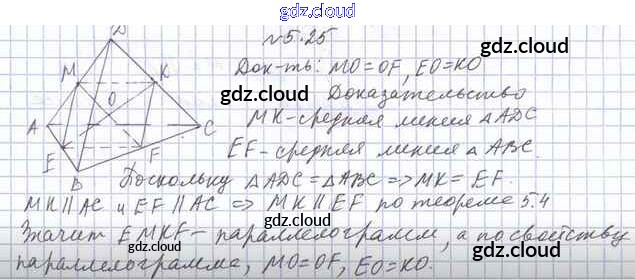 gdz.cloud
№5.25
Док-ть: MO=OF, EO=KO
gdz.cloud
gdz.cloud
Доказательство
MK-средняя линия △ADC
gdz.cloud
EF-средняя линия △ABC.
Поскольку △ADC=△ABC => MK=EF.
MK∥AC и EF∥AC => MK∥EF по теореме 5.4
Значит EMKF- параллелограмм, а по свойству
gdz.cloud
параллелограмма, MO=OF, EO=KO.
D
M
K
O
A
C
E
F
B